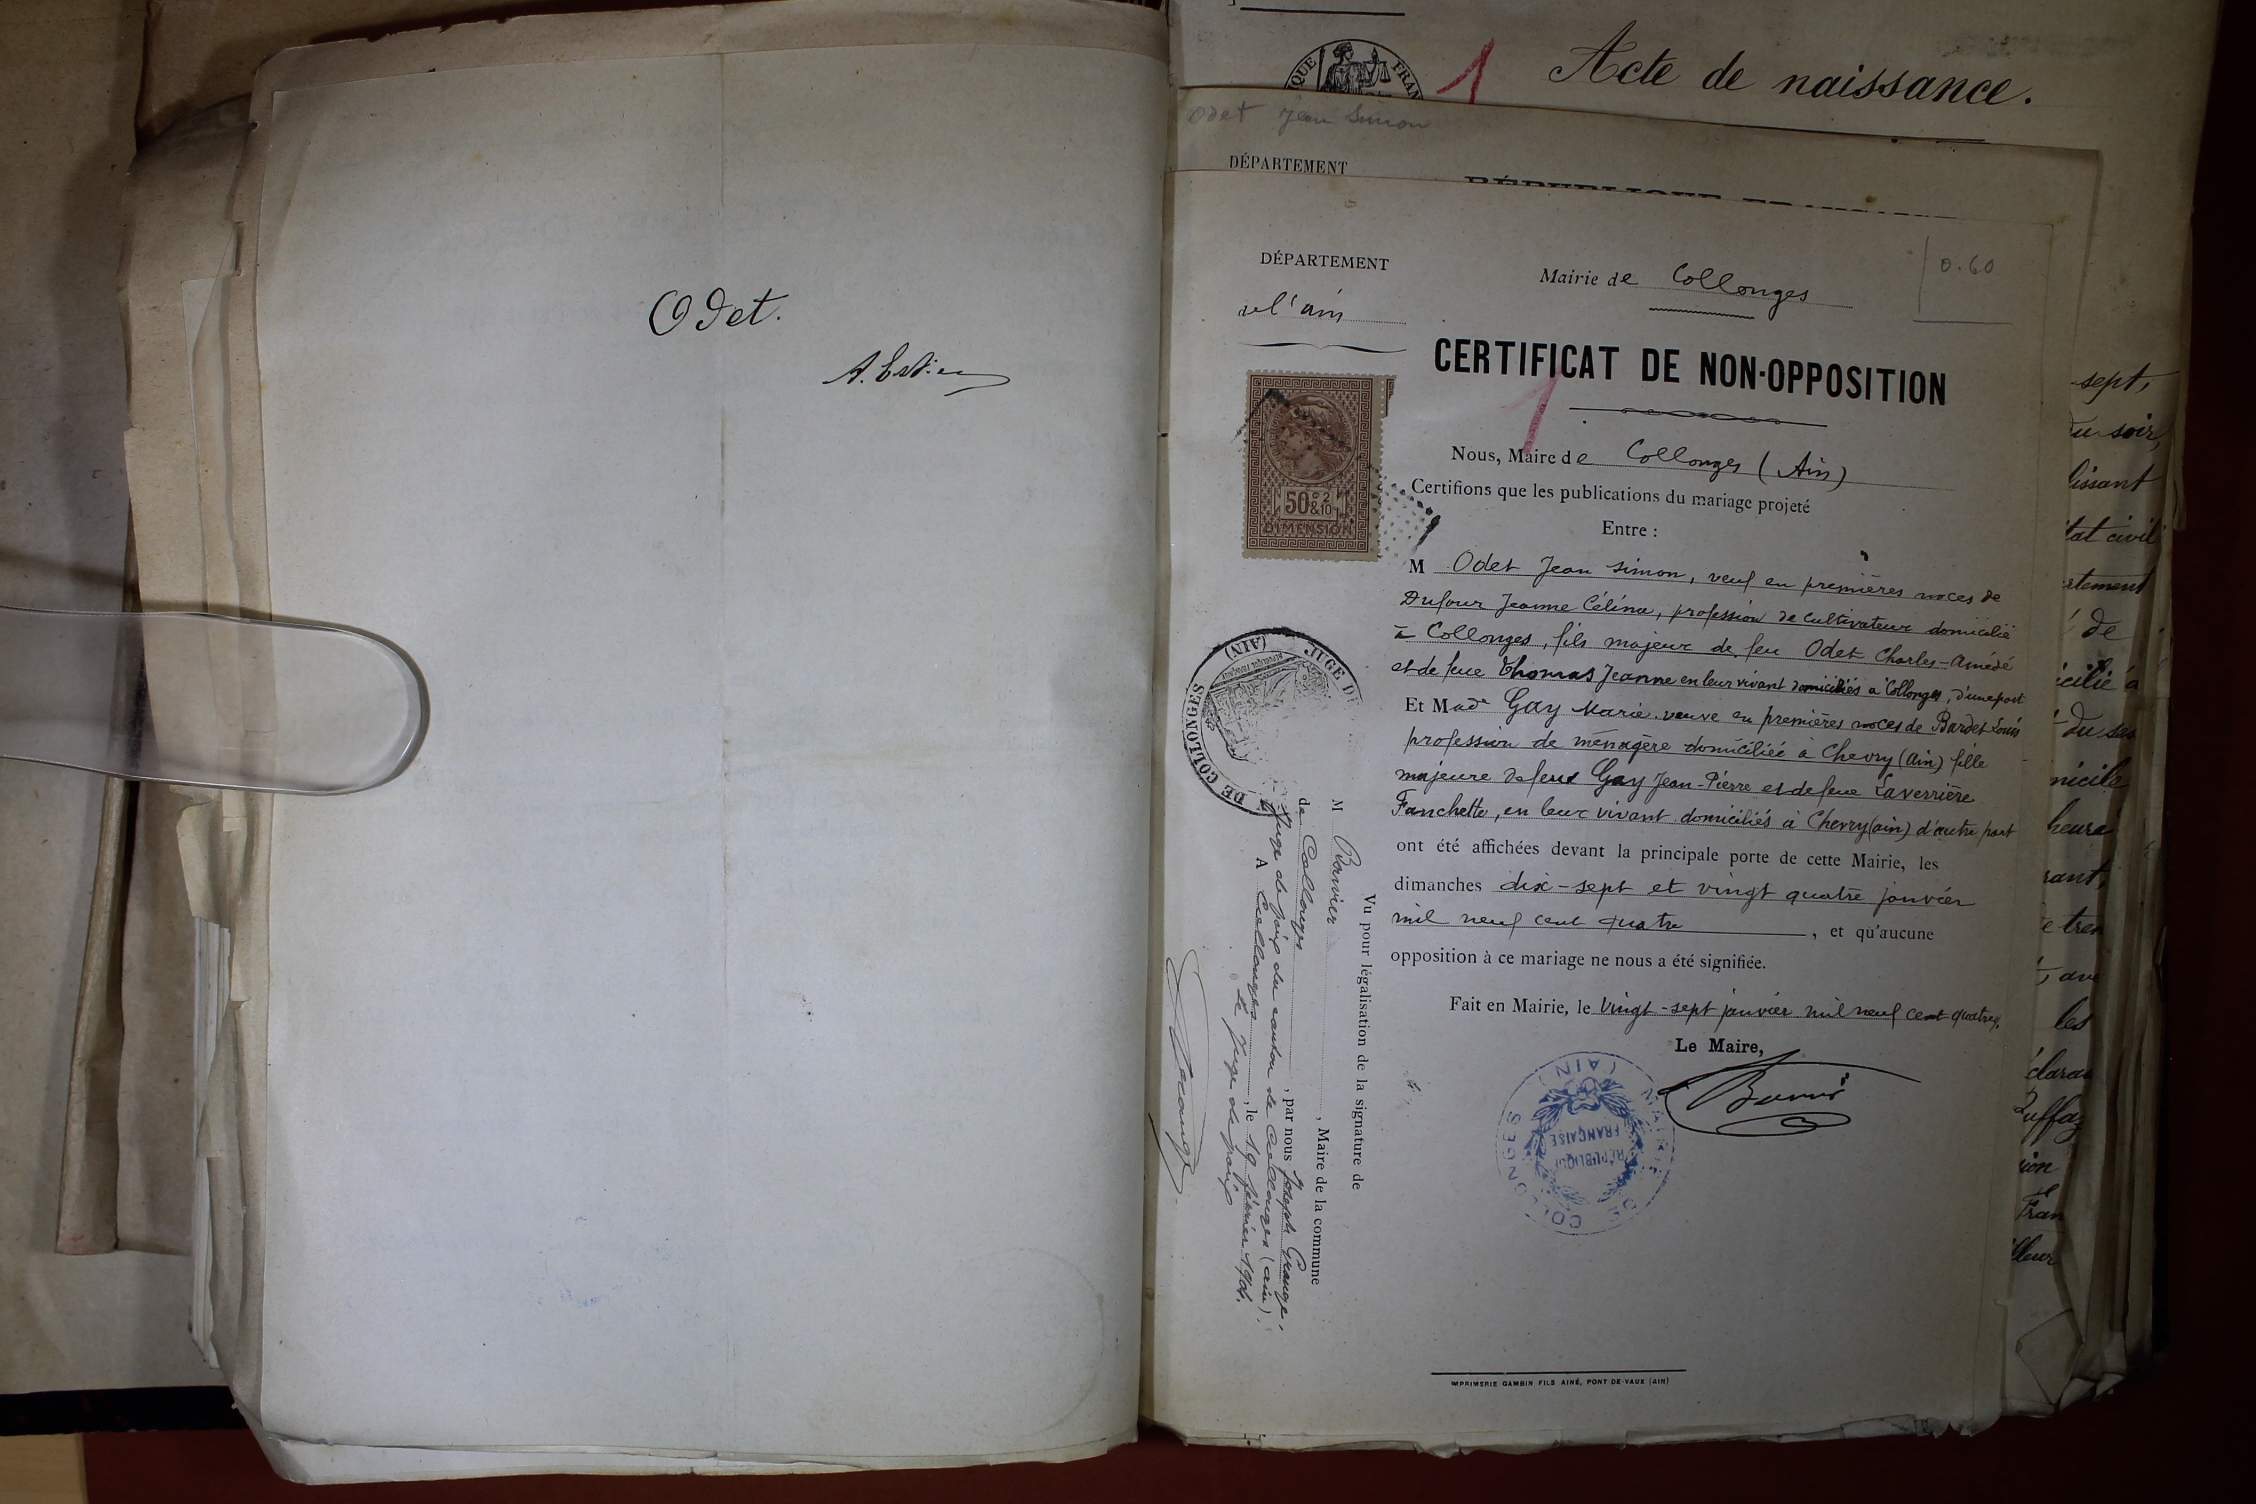 Odet.
Acte de naissance.
1
QUE FRAN
Odet Jean Simon
DÉPARTEMENT
RÉPUBLIQUE FRANÇAISE
DÉPARTEMENT
de l'ain
Mairie de Collonges
0.60
CERTIFICAT DE NON-OPPOSITION
1
50 c 2 & 10
DIMENSION
Nous, Maire de Collonges (Ain)
Certifions que les publications du mariage projeté
Entre :
M Odet Jean Simon, veuf en premières noces de
Dufour Jeanne Célina, profession de cultivateur domicilié
à Collonges, fils majeur de feu Odet Charles-Amédé
et de feue Thomas Jeanne en leur vivant domiciliés à Collonges, d'une part
Et Made Gay Marie veuve en premières noces de Bardet Louis
profession de ménagère domiciliée à Chevry (Ain) fille
majeure de feux Gay Jean-Pierre et de feue Laverrière
Fanchette, en leur vivant domiciliés à Chevry (ain) d'autre part
ont été affichées devant la principale porte de cette Mairie, les
dimanches dix-sept et vingt quatre janvier
mil neuf cent quatre, et qu'aucune
opposition à ce mariage ne nous a été signifiée.
Fait en Mairie, le vingt-sept janvier mil neuf cent quatre.
Le Maire,
MAIRIE DE COLLONGES (AIN)
RÉPUBLIQUE FRANÇAISE
JUGE DE
DE COLLONGES (AIN)
Vu pour légalisation de la signature de
M Bouvier, Maire de la commune
de Collonges, par nous Joseph Grange,
Juge de paix du canton de Collonges (ain).
A Collonges, le 19 février 1904.
Le Juge de paix
IMPRIMERIE GAMBIN FILS AINÉ, PONT-DE-VAUX (AIN)
sept,
du soir,
tat civil
de
nicile
heure
les